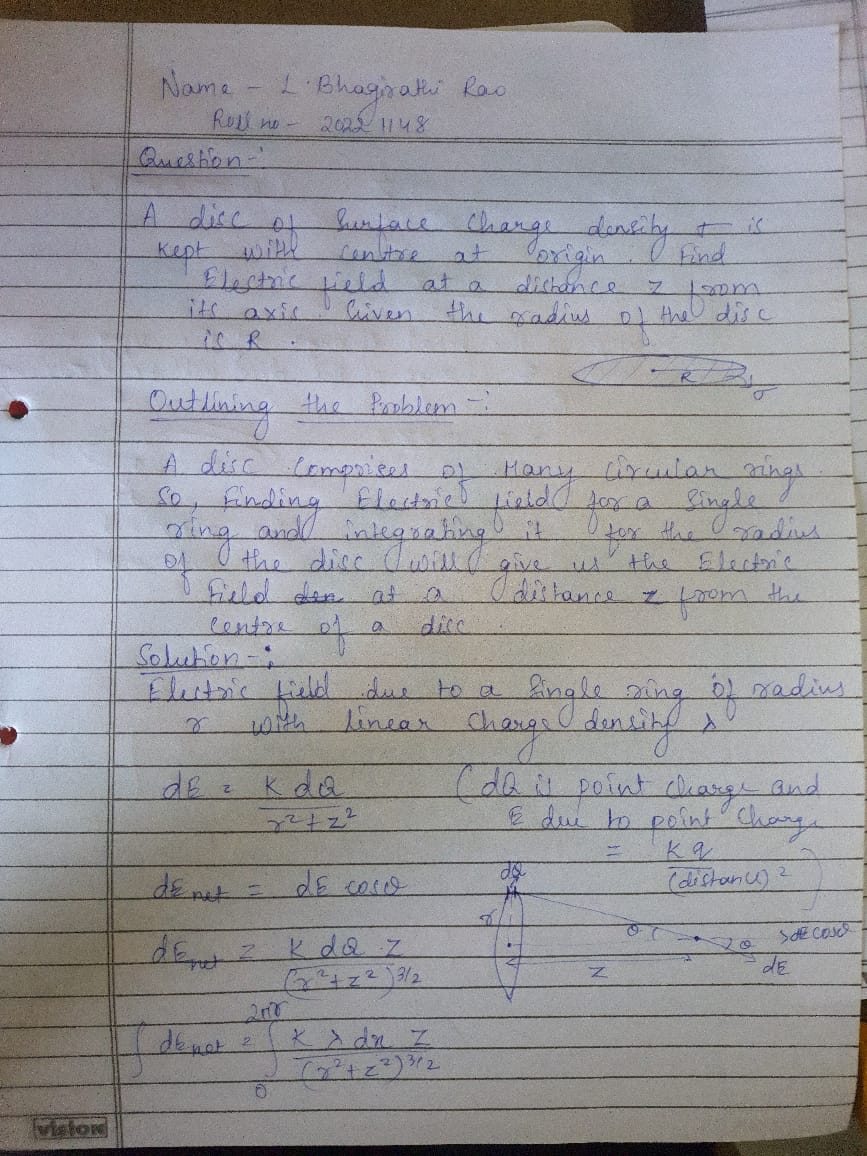 Name - L. Bhagirathi Rao
Roll no - 20221148
Question -:
A disc of Surface Charge density σ is
kept with centre at origin. Find
Electric field at a distance z from
its axis. Given the radius of the disc
is R.
R
σ
Outlining the Problem -:
A disc Comprises of Many Circular rings
So, finding Electric field for a Single
ring and integrating it for the radius
of the disc will give us the Electric
Field den at a distance z from the
Centre of a disc.
Solution -:
Electric field due to a Single ring of radius
r with linear Charge density λ
dE = K dQ / r²+z² (dQ is point charge and
E due to point Charge
= Kq / (distance)²)
dE net = dE cosθ
dQ
r
θ
θ
dE cosθ
dE
z
dE net = K dQ . Z / (r²+z²)^3/2
∫ dE net = ∫ 0 2πr K λ dx Z / (r²+z²)^3/2
vision